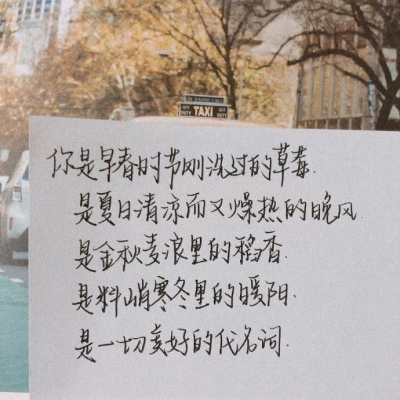 OFF DUTY TAXI OFF DUTY
你是早春时节刚洗过的草莓.
是夏日清凉而又燥热的晚风.
是金秋麦浪里的稻香.
是料峭寒冬里的暖阳.
是一切美好的代名词.